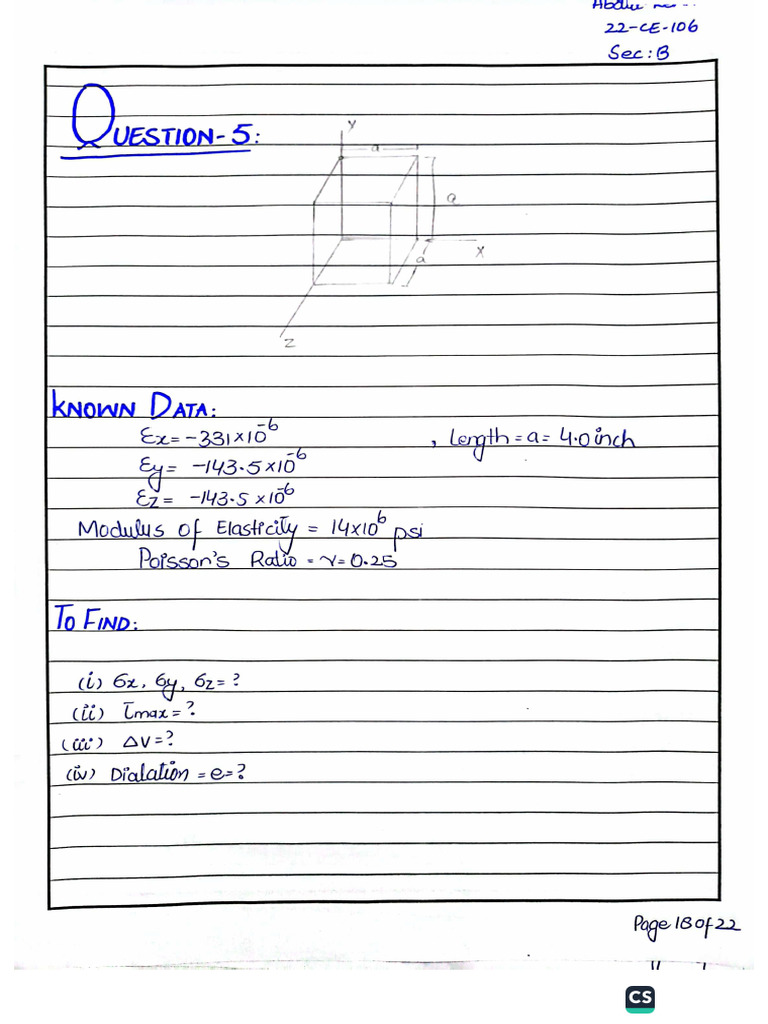 22-CE-106
Sec: B
QUESTION-5:
Y
a
a
X
a
Z
KNOWN DATA:
Ɛx = -331×10⁻⁶ , Length = a = 4.0 inch
Ɛy = -143.5×10⁻⁶
Ɛz = -143.5×10⁻⁶
Modulus of Elasticity = 14×10⁶ psi
Poisson's Ratio = ν = 0.25
TO FIND:
(i) σx, σy, σz = ?
(ii) τmax = ?
(iii) ΔV = ?
(iv) Dialation = e = ?
Page 18 of 22
CS